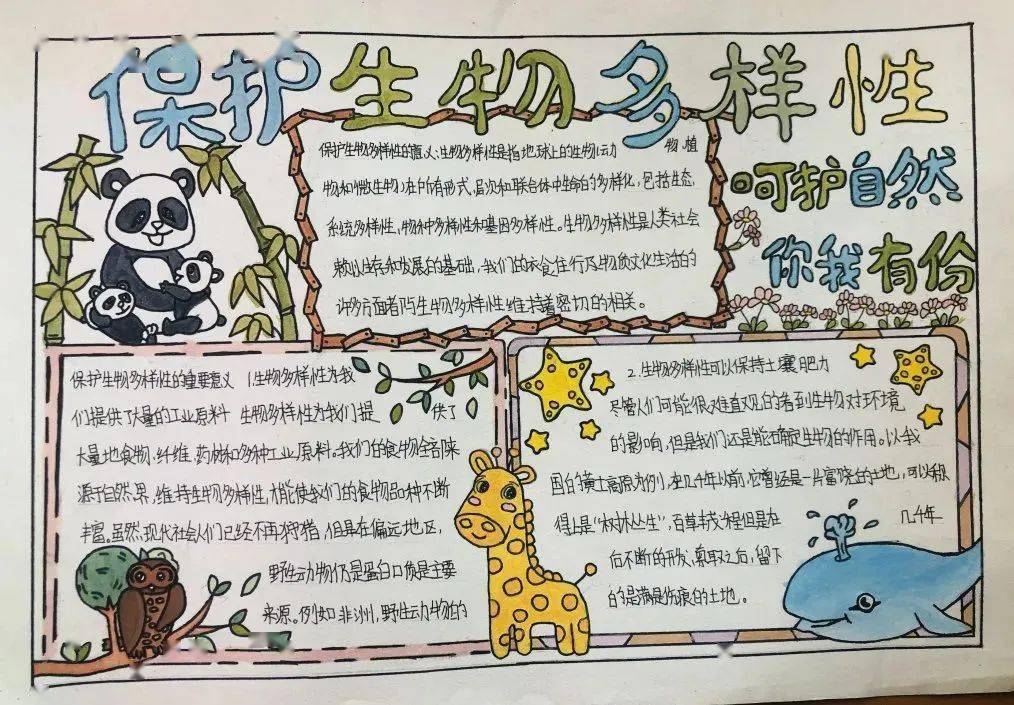 保护生物多样性
呵护自然
你我有份
保护生物多样性的意义:生物多样性是指地球上的生物(动 物、植
物和微生物)在所有形式、层次和联合体中生命的多样化,包括生态
系统多样性,物种多样性和基因多样性。生物多样性是人类社会
赖以生存和发展的基础,我们的衣食住行及物质文化生活的
许多方面都与生物多样性维持着密切的相关。
保护生物多样性的重要意义 1.生物多样性为我
们提供了大量的工业原料 生物多样性为我们提 供了
大量地食物、纤维、药材和多种工业原料。我们的食物全部来
源于自然界,维持生物多样性,才能使我们的食物品种不断
丰富。虽然,现代社会人们已经不再狩猎,但是在偏远地区,
野生动物仍是蛋白质是主要
来源。例如非洲,野生动物的
2.生物多样性可以保持土壤肥力
尽管人们可能很难直观的看到生物对环境
的影响,但是我们还是能确定生物的作用。以我
国的黄土高原为例,在几千年以前,它曾经是一片富饶的土地,可以积
得上是“树林丛生”,百草丰茂,程但是在 几千年
后不断的开发、索取之后,留下
的是满是伤痕的土地。